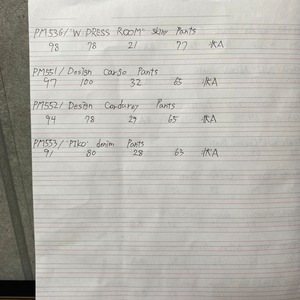 PM536/"W DRESS ROOM" skiny Pants
98 78 21 77 水A
PM551/Design Cargo Pants
97 100 32 65 水A
PM552/Design Corduroy Pants
94 78 29 65 水A
PM553/"PIKO" denim Pants
91 80 28 63 水A